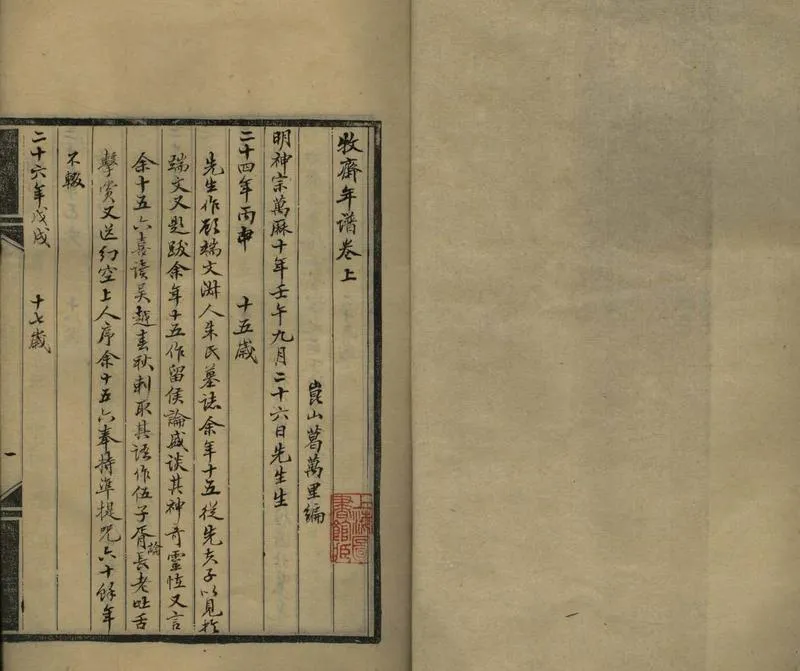 牧齋年譜卷上
崑山葛萬里編
上海圖書館藏
明神宗萬厤十年壬午九月二十六日先生生
二十四年丙申 十五歲
先生作顧端文淑人朱氏墓誌余年十五從先夫子以見於
端文又題跋余年十五作留侯論盛談其神奇靈怪又言
余十五六喜讀吴越春秋刺取其語作伍子胥論長老吐舌
擊賞又送幻空上人序余十五六奉持準提咒六十餘年
不輟
二十六年戊戌 十七歲
一